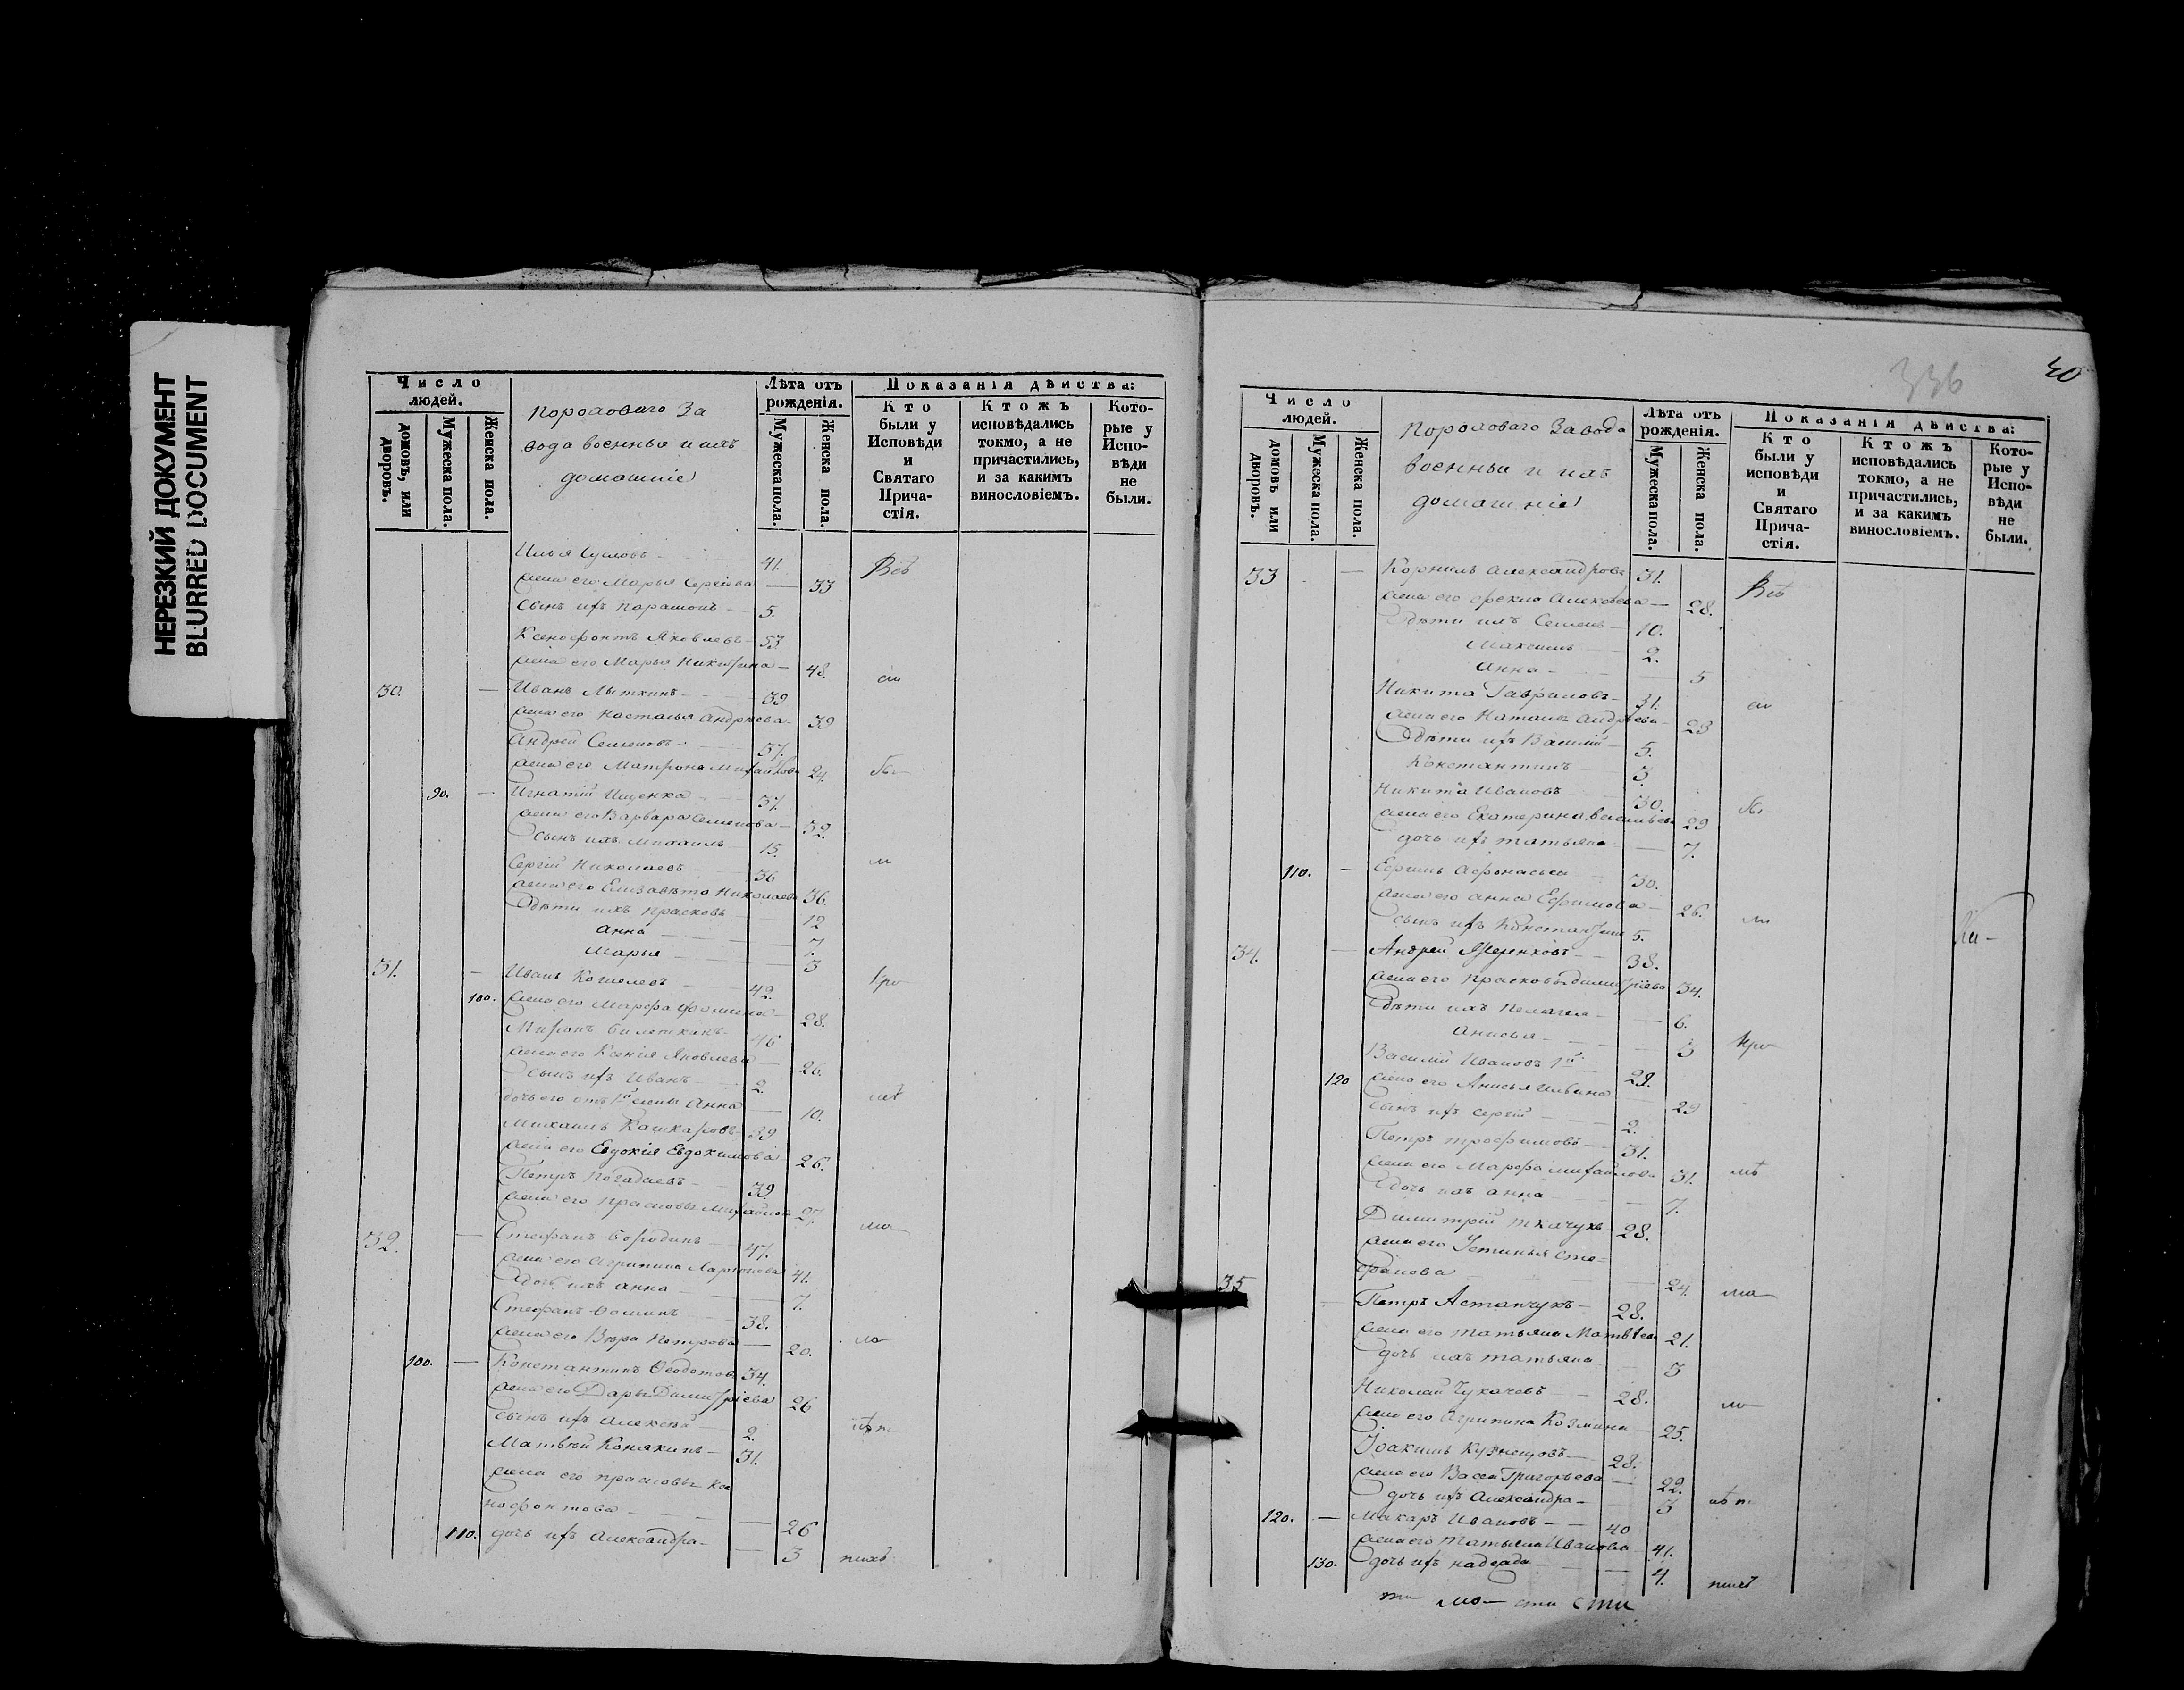 НЕРЕЗКИЙ ДОКУМЕНТ
BLURRED DOCUMENT
Число людей.
домовъ, или дворовъ.
Мужеска пола.
Женска пола.
Пороховаго За
вода военныя и ихъ
домашніе
Лѣта отъ рожденія.
Мужеска пола.
Женска пола.
Показанія дѣйства:
Кто были у Исповѣди и Святаго Прича-стія.
Ктожъ исповѣдались токмо, а не причастились, и за какимъ винословіемъ.
Кото-рые у Испо-вѣди не были.
Илья Сусловъ 41. Всѣ
жена его Марья Сергіева — 33
сынъ ихъ 5.
Ксенофонтъ Яковлевъ 53
жена его Марья Никитина — 48.
30. — Иванъ Лыткинъ 39
жена его Настасья Андреева 39
Андрей Семеновъ 37.
жена его Матрона Михайлова 24.
90. — Игнатій Ищенко 37.
жена его Варвара Семенова — 32.
сынъ ихъ Михаилъ 15.
Сергій Николаевъ 36
жена его Елизавета Николаева 36.
дѣти ихъ Прасковья 12
Анна 7.
Марья 3
31. — Иванъ Кошелевъ 42.
100. жена его Марфа Фомина 28.
Миронъ 46
жена его Ксенія Яковлева 26.
сынъ ихъ Иванъ 2.
дочь его отъ 1й жены Анна — 10.
Михаилъ Кашкаровъ 39
жена его Евдокія Евдокимова 26.
Петръ Погадаевъ 39.
жена его Прасковья Михайлова 27.
32. — Стефанъ Бородинъ 47.
жена его Агрипина Ларіонова 41.
дочь ихъ Анна 7.
Стефанъ Фоминъ 38.
жена его Вѣра Петрова — 20.
100. — Константинъ Ѳедотовъ 34.
жена его Дарья Димитріева 26
сынъ ихъ Алексѣй 2.
Матвѣй Конякинъ — 31.
жена его Прасковья Ксе
нофонтова — 26
110. дочь ихъ Александра — 3
336
40
Число людей.
домовъ или дворовъ.
Мужеска пола.
Женска пола.
Пороховаго Завода
военныи и ихъ
домашніе
Лѣта отъ рожденія.
Мужеска пола.
Женска пола.
Показанія дѣйства:
Кто были у исповѣди и Святаго Прича-стія.
Ктожъ исповѣдались токмо, а не причастились, и за какимъ винословіемъ.
Кото-рые у Испо-вѣди не были.
33 — Корнилъ Александровъ 31. Всѣ
жена его Фекла Алексѣева — 28.
дѣти ихъ Семенъ 10.
Максимъ 2.
Анна 5
Никита Гавриловъ 31.
жена его Наталья Андреева 23
дѣти ихъ Василій 5.
Константинъ 3.
Никита Ивановъ 30.
жена его Екатерина Васильева 29
дочь ихъ Татьяна — 7.
110. — Ефимъ Афонасьев 30.
жена его Анна Ефимова — 26.
сынъ ихъ Константинъ 5.
34. — Андрей 38.
жена его Прасковья Димитріева 34.
дѣти ихъ Пелагея — 6.
Анисья 3
Василій Ивановъ 1й 29.
120 жена его Анисья Ильина 29
сынъ ихъ Сергій 2.
Петръ Трофимовъ 31.
жена его Марфа Михайлова 31.
дочь ихъ Анна 7.
Димитрій Ткачукъ 28.
жена его Устинья Сте-
фанова 24.
35 — Петръ Астапчукъ 28.
жена его Татьяна Матвѣева 21.
дочь ихъ Татьяна — 3
Николай Чухачевъ 28.
жена его Агрипина Козмина 25.
Іоакимъ Кузнецовъ 28.
жена его Васса Григорьева — 22.
дочь ихъ Александра — 3
120. — Макаръ Ивановъ — 40
жена его Татьяна Иванова 41.
130. дочь ихъ Надежда — 4.